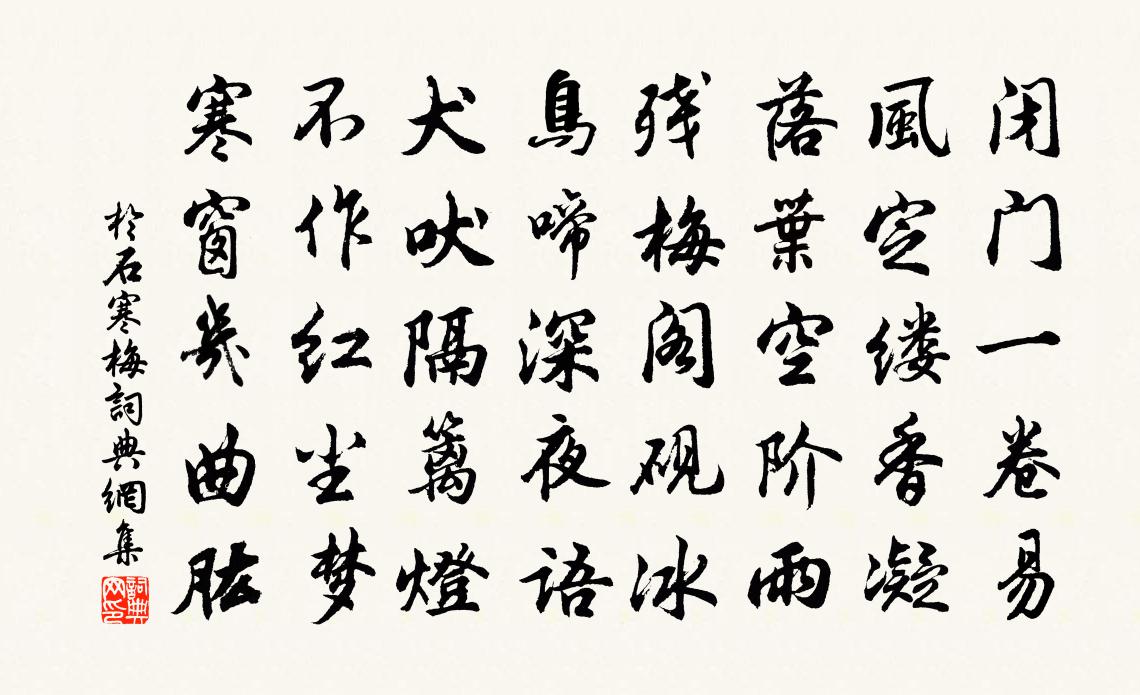 闭门一卷易
風定缕香凝
落葉空阶雨
残梅阁砚冰
鳥啼深夜語
犬吠隔篱燈
不作红尘梦
寒窗幾曲肱
於石寒梅詞典網集
詞典网印